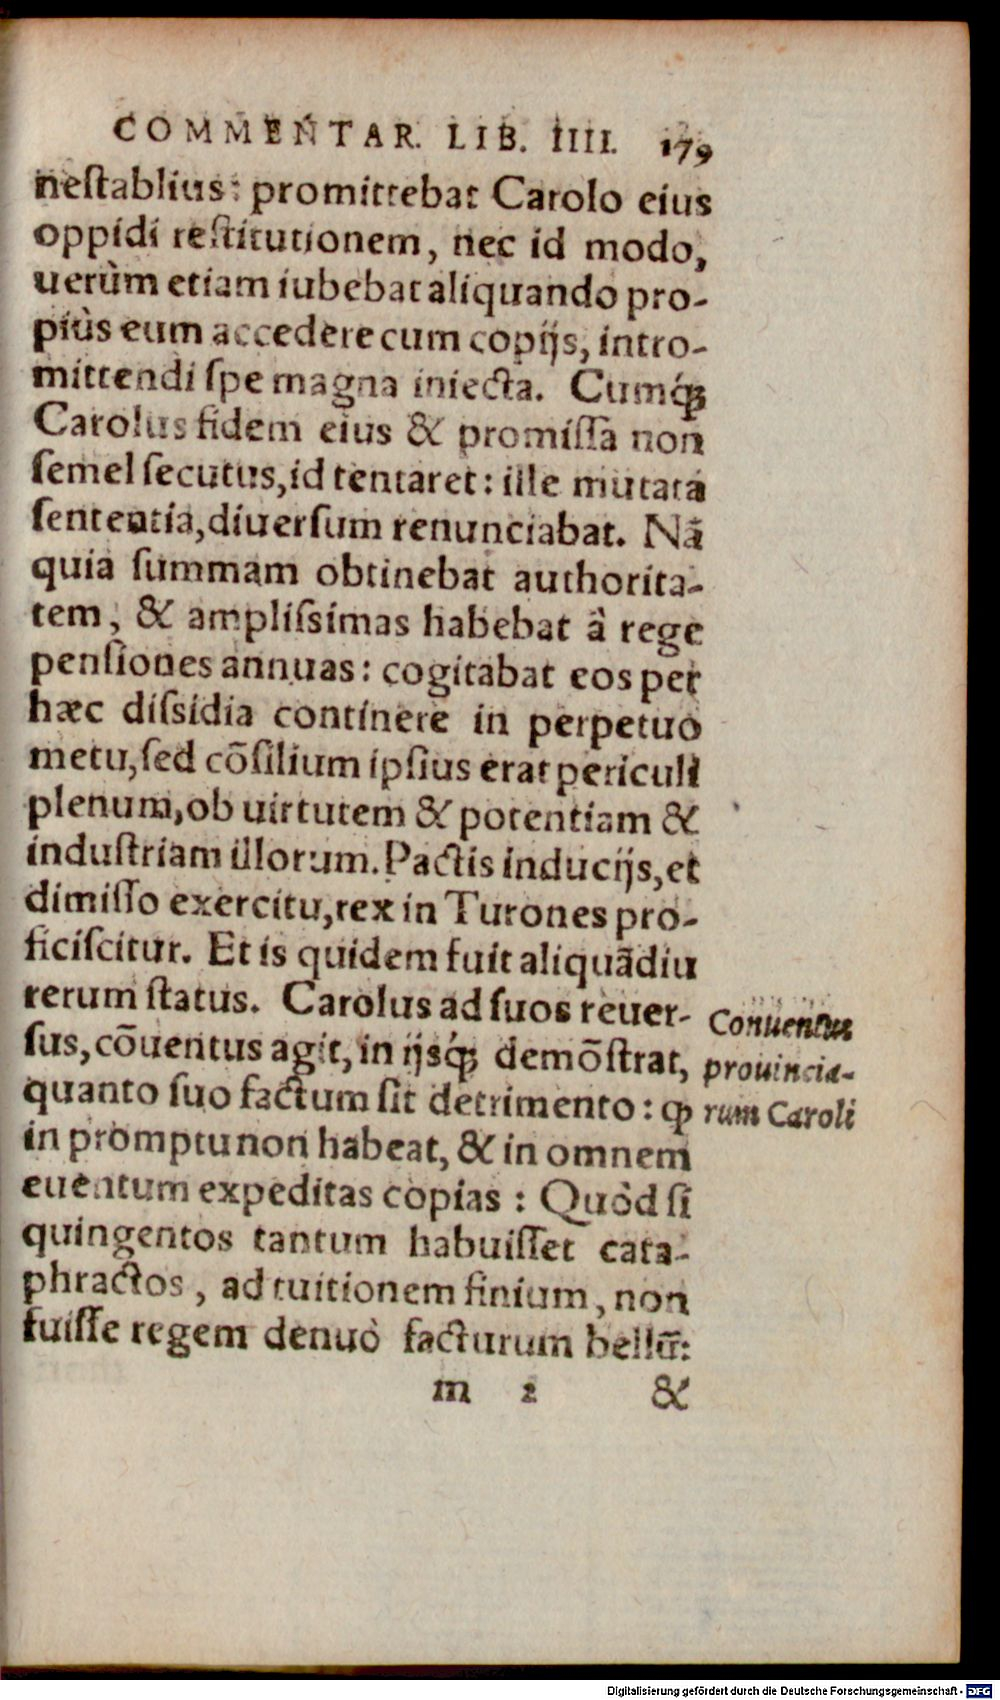 COMMENTAR. LIB. IIII. 179
neſtablius: promittebat Carolo eius
oppidi reſtitutionem, nec id modo,
uerùm etiam iubebat aliquando pro-
piùs eum accedere cum copijs, intro-
mittendi ſpe magna iniecta. Cumq́ꝫ
Carolus fidem eius & promiſſa non
ſemel ſecutus, id tentaret: ille mutata
ſententia, diuerſum renunciabat. Nã
quia ſummam obtinebat authorita-
tem, & ampliſsimas habebat à rege
penſiones annuas: cogitabat eos per
hæc diſsidia continere in perpetuo
metu, ſed cõſilium ipſius erat periculi
plenum, ob uirtutem & potentiam &
induſtriam illorum. Pactis inducijs, et
dimiſſo exercitu, rex in Turones pro-
ficiſcitur. Et is quidem fuit aliquãdiu
rerum ſtatus. Carolus ad ſuos reuer-
ſus, cõuentus agit, in ijsq́ꝫ demõſtrat,
quanto ſuo factum ſit detrimento: ꝙ
in promptu non habeat, & in omnem
euentum expeditas copias: Quòd ſi
quingentos tantum habuiſſet cata-
phractos, ad tuitionem finium, non
fuiſſe regem denuò facturum bellũ:
m 2 &
Conuentus
prouincia-
rum Caroli
Digitalisierung gefördert durch die Deutsche Forschungsgemeinschaft - DFG